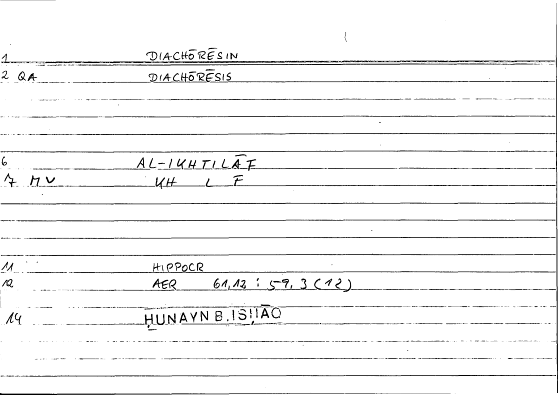 1 DIACHŌRĒSIN
2 QA DIACHŌRĒSIS
6 AL-IKHTILĀF
7 MV KH L F
11 HIPPOCR
12 AER 61,12 : 59,3(12)
14 ḤUNAYN B. ISḤĀQ